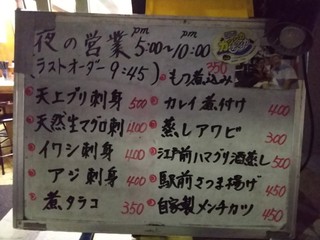 夜の営業 pm 5:00~pm 10:00
(ラストオーダー 9:45)
もつ煮込み 350
天上ブリ刺身 500
天然生マグロ刺 400
イワシ刺身 400
アジ刺身 400
煮タラコ 350
カレイ煮付け 400
蒸しアワビ 300
江戸前ハマグリ酒蒸し 500
駅前さつま揚げ 450
自家製メンチカツ 450